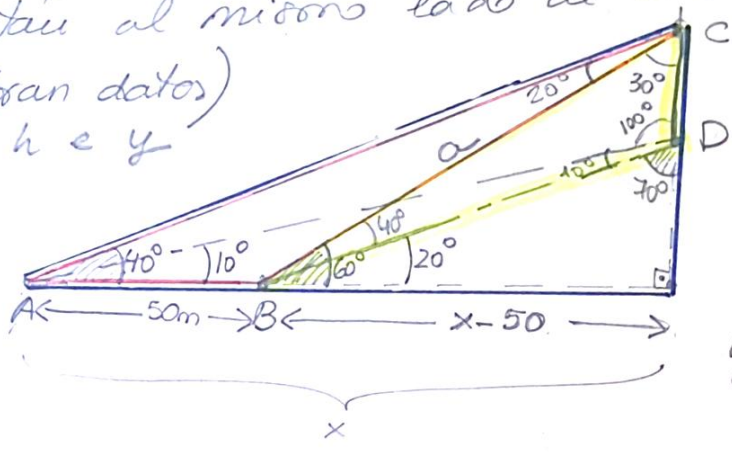 al mismo lado
datos)
h e y
C
20°
30°
100°
D
a
10°
70°
40°
40°
10°
60°
20°
A
50m
B
x-50
x